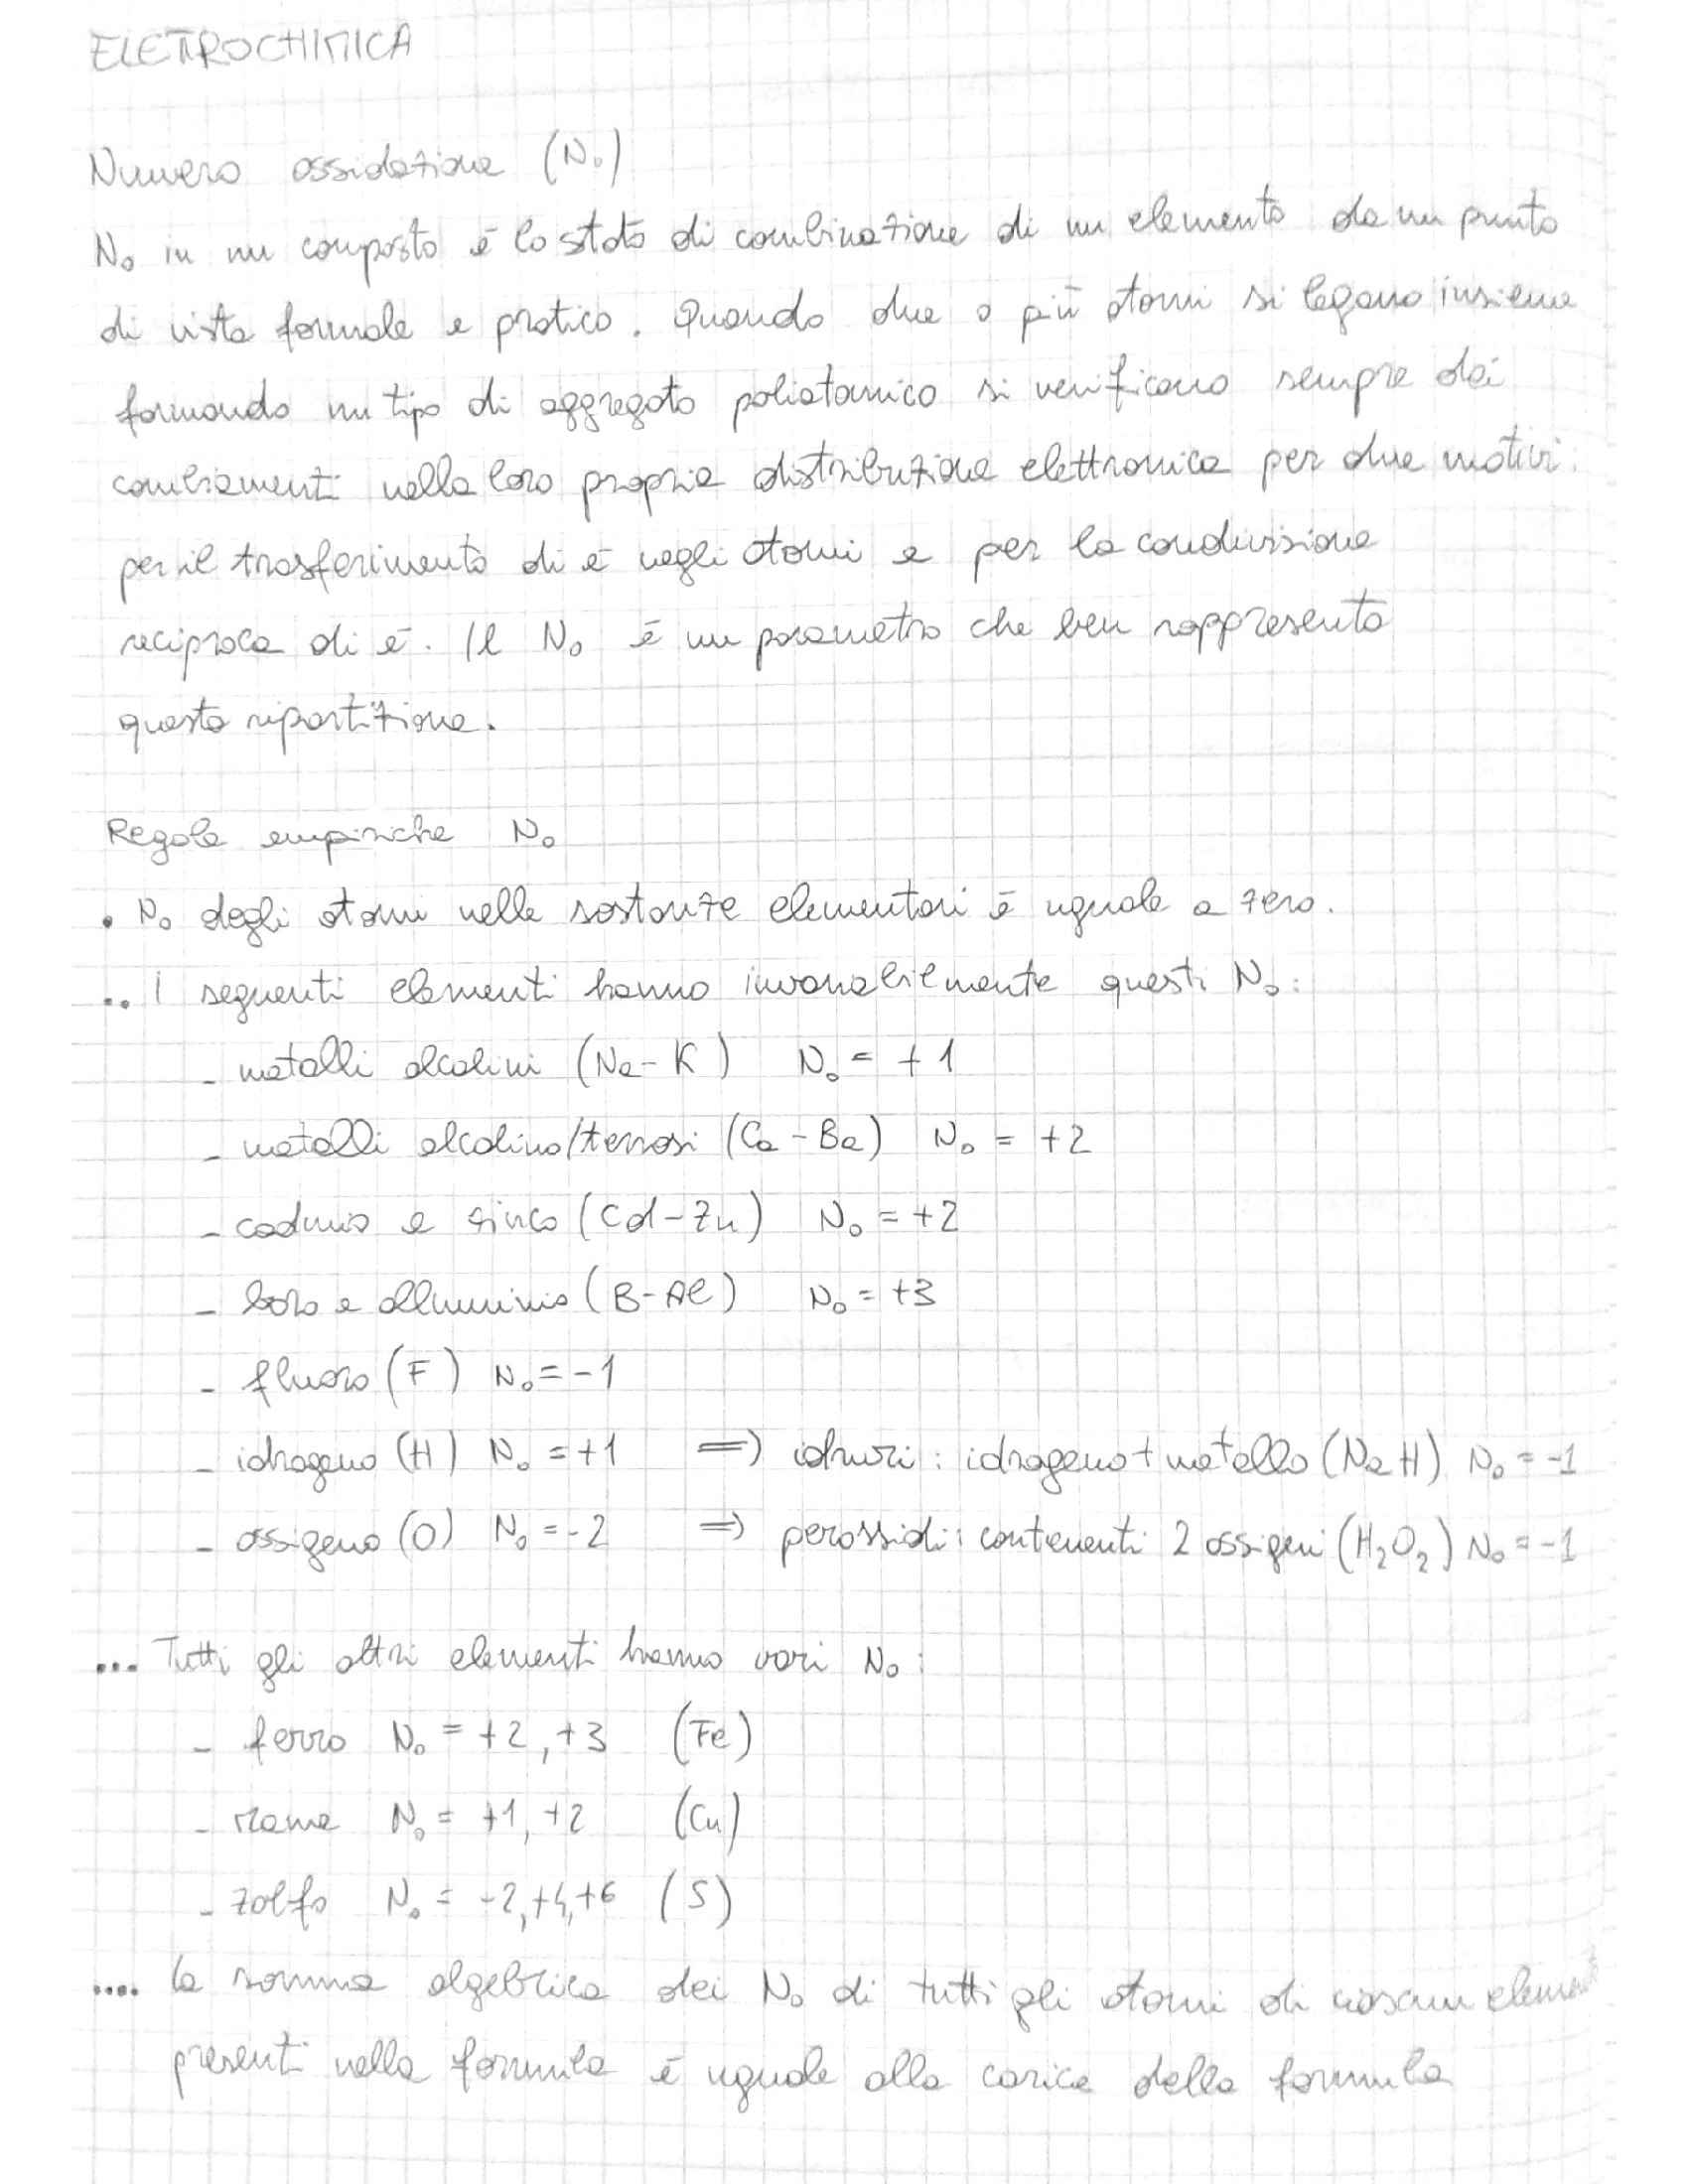 ELETTROCHIMICA
Numero ossidazione (N₀)
N₀ in un composto è lo stato di combinazione di un elemento da un punto
di vista formale e pratico. Quando due o più atomi si legano insieme
formando un tipo di aggregato poliatomico si verificano sempre dei
cambiamenti nella loro propria distribuzione elettronica per due motivi:
per il trasferimento di e⁻ negli atomi e per la condivisione
reciproca di e⁻. Il N₀ è un parametro che ben rappresenta
questa ripartizione.
Regole empiriche N₀
• N₀ degli atomi nelle sostanze elementari è uguale a zero.
•• I seguenti elementi hanno invariabilmente questi N₀:
- metalli alcalini (Na-K) N₀ = +1
- metalli alcalino/terrosi (Ca-Ba) N₀ = +2
- cadmio e zinco (Cd-Zn) N₀ = +2
- boro e alluminio (B-Al) N₀ = +3
- fluoro (F) N₀ = -1
- idrogeno (H) N₀ = +1 ⇒ idruri: idrogeno + metallo (NaH) N₀ = -1
- ossigeno (O) N₀ = -2 ⇒ perossidi: contenenti 2 ossigeni (H₂O₂) N₀ = -1
••• Tutti gli altri elementi hanno vari N₀:
- ferro N₀ = +2, +3 (Fe)
- rame N₀ = +1, +2 (Cu)
- zolfo N₀ = -2, +4, +6 (S)
•••• la somma algebrica dei N₀ di tutti gli atomi di ciascun elemento
presenti nella formula è uguale alla carica della formula